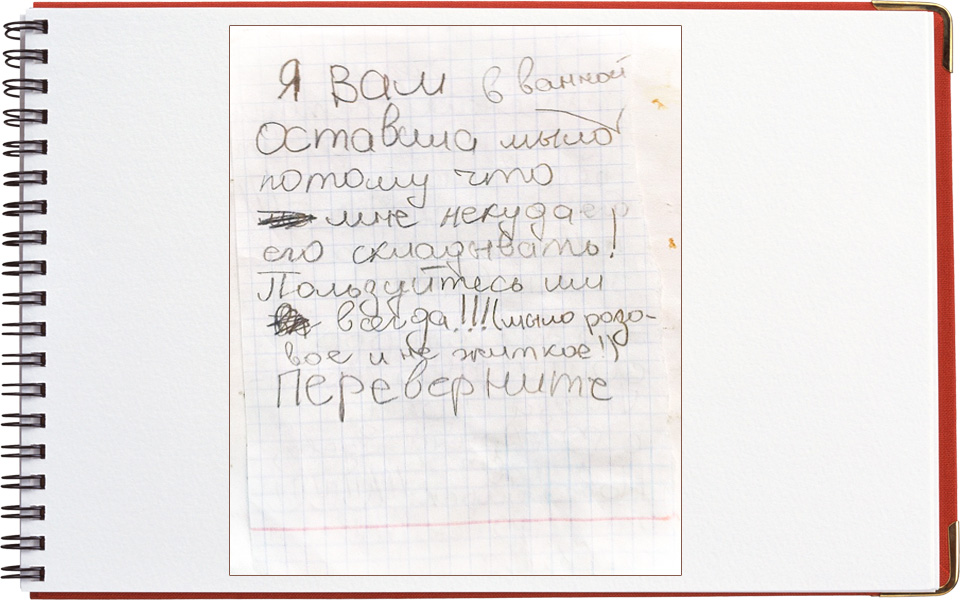 Я вам в ванной
оставила мыло
потому что
мне некуда
его складывать!
Пользуйтесь им
всегда!!!(мыло розо-
вое и не житкое!)
Переверните